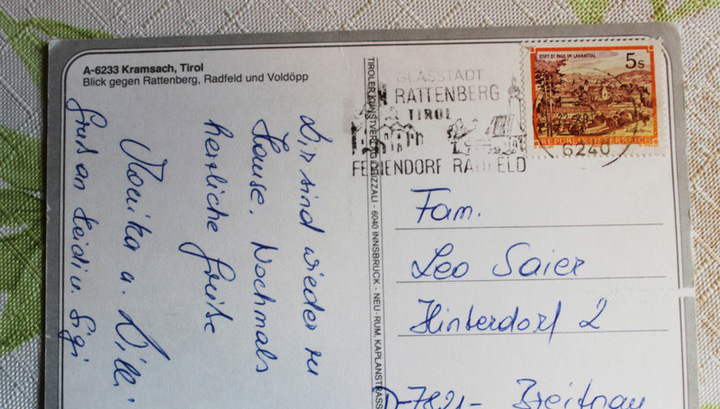 A-6233 Kramsach, Tirol
Blick gegen Rattenberg, Radfeld und Voldöpp
Wir sind wieder zu
Hause. Nochmals
herzliche Grüße
Monika u. Willi
Gruß an Heidi u. Sigi
TIROLER KUNSTVERLAG CHIZZALI · 6040 INNSBRUCK - NEU-RUM, KAPLANSTRASS
GLASSTADT
RATTENBERG
TIROL
FERIENDORF RADFELD
STIFT ST. PAUL IM LAVANTTAL
5s
REPUBLIK ÖSTERREICH
6240
Fam.
Leo Saier
Hinterdorf 2
D-7821- Breitnau